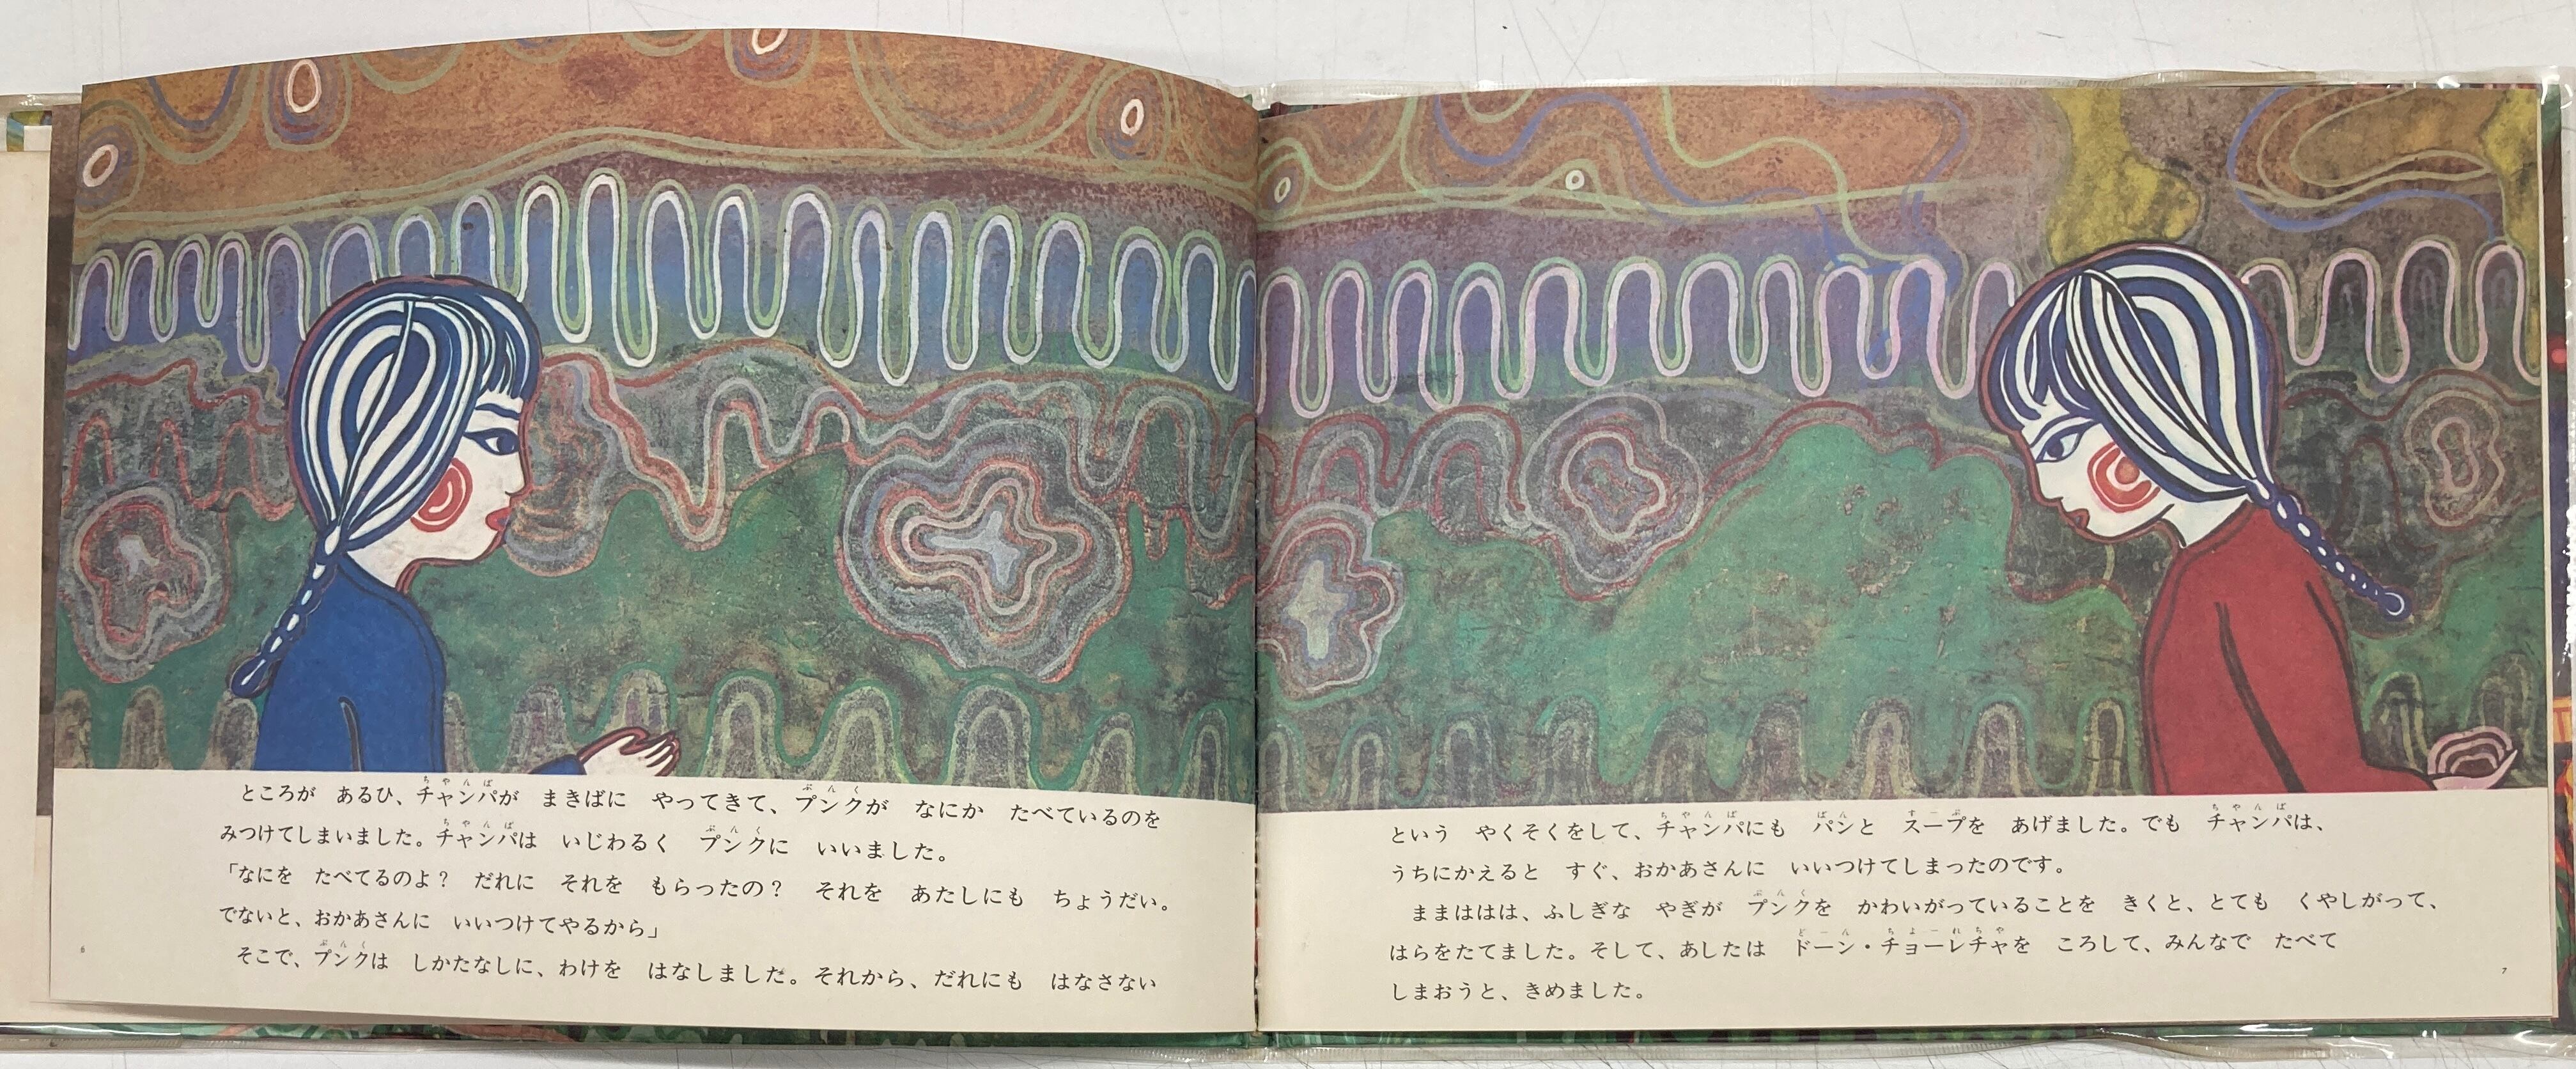 ところが　あるひ、チャンパが　まきばに　やってきて、プンクが　なにか　たべているのを
みつけてしまいました。チャンパは　いじわるく　プンクに　いいました。
「なにを　たべてるのよ？　だれに　それを　もらったの？　それを　あたしにも　ちょうだい。
でないと、おかあさんに　いいつけてやるから」
そこで、プンクは　しかたなしに、わけを　はなしました。それから、だれにも　はなさない
6
という　やくそくをして、チャンパにも　パンと　スープを　あげました。でも　チャンパは、
うちにかえると　すぐ、おかあさんに　いいつけてしまったのです。
ままははは、ふしぎな　やぎが　プンクを　かわいがっていることを　きくと、とても　くやしがって、
はらをたてました。そして、あしたは　ドーン・チョーレチャを　ころして、みんなで　たべて
しまおうと、きめました。
7